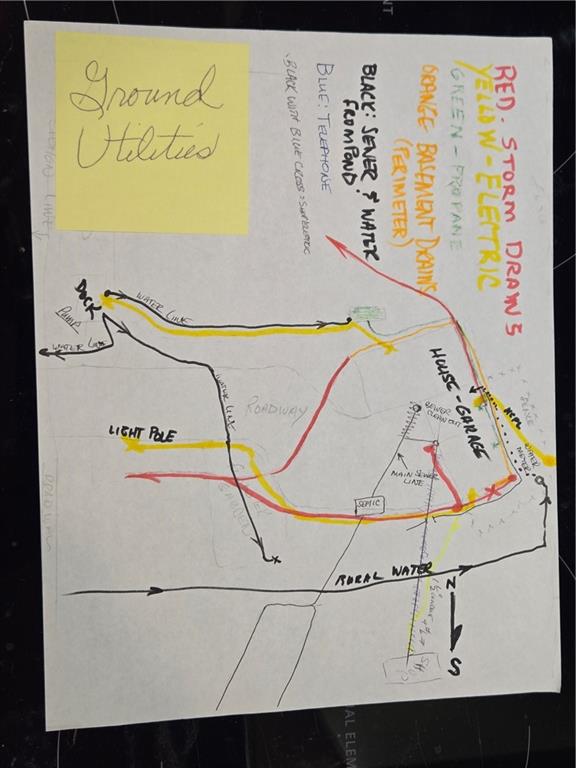 Ground
Utilities
RED. STORM DRAINS
YELLOW - ELECTRIC
GREEN - PROPANE
ORANGE BASEMENT DRAINS
(PERIMETER)
BLACK: SEWER & WATER
FROM POND
BLUE: TELEPHONE
BLACK WITH BLUE CROSS =
DOCK
PUMP
WATER LINE
WATER LINE
WATER LINE
HOUSE - GARAGE
WATER
METER
ROADWAY
SEWER
CLEAN OUT
LIGHT POLE
MAIN SEWER
LINE
SEPTIC
RURAL WATER
N
S
AL ELEMEN